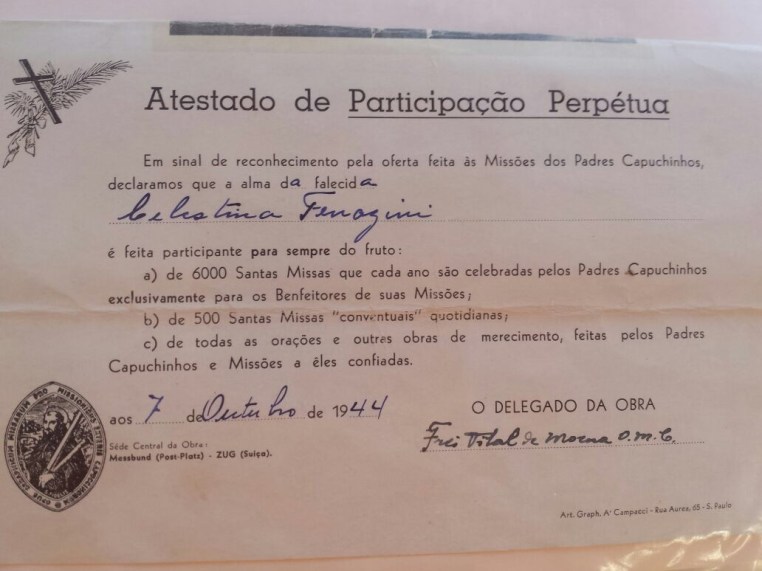 Atestado de Participação Perpétua
Em sinal de reconhecimento pela oferta feita às Missões dos Padres Capuchinhos,
declaramos que a alma da falecida
Celestina
é feita participante para sempre do fruto:
a) de 6000 Santas Missas que cada ano são celebradas pelos Padres Capuchinhos
exclusivamente para os Benfeitores de suas Missões;
b) de 500 Santas Missas "conventuais" quotidianas;
c) de todas as orações e outras obras de merecimento, feitas pelos Padres
Capuchinhos e Missões a êles confiadas.
aos 7 de Outubro de 1944
O DELEGADO DA OBRA
Frei Vital de O.M.C.
Séde Central da Obra:
Messbund (Post-Platz) - ZUG (Suiça).
Art. Graph. Aº Campacci - Rua Aurea, 65 - S. Paulo